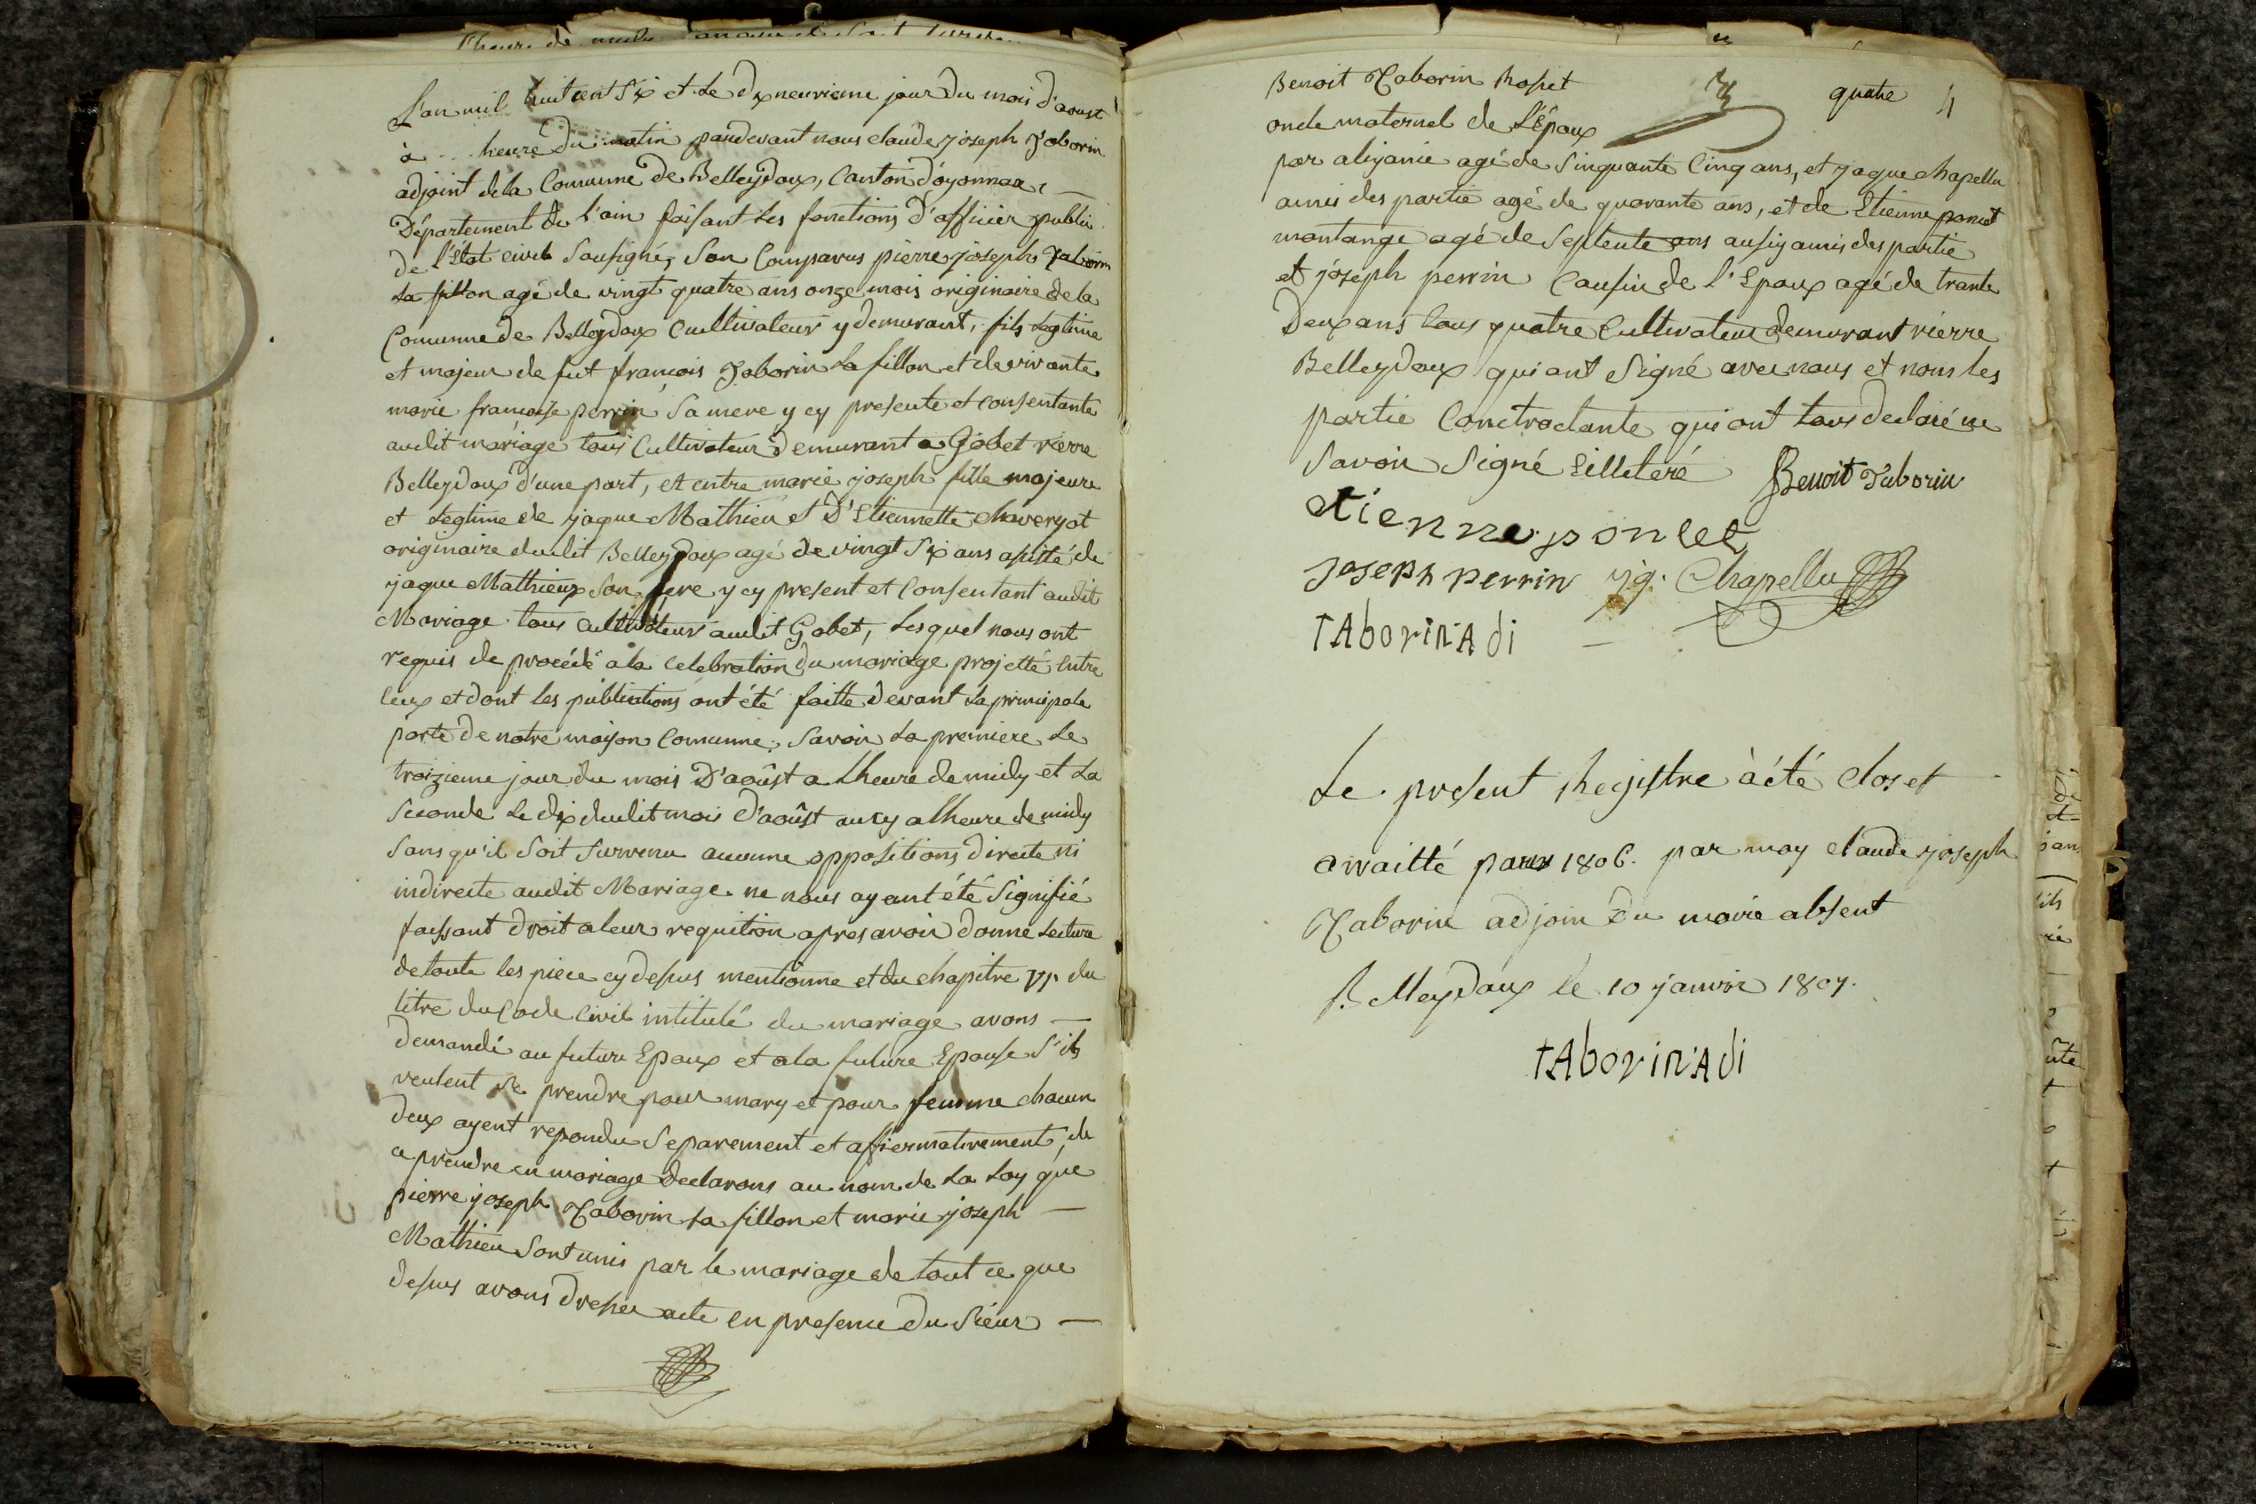 L'an mil huit cent Six et Le dixneuvieme jour Du mois d'aoust
à ... heure Du matin pardevant nous claude joseph Taborin
adjoint de la Comunne De Belleydoux, Canton d'oyonnax
Département de l'ain faisant Les fonctions d'officier public
de l'Etat civil Sousigné, Son Comparus pierre joseph Taborin
La fillon agé de vingt quatre ans onze mois originaire de la
Comunne de Belleydoux Cultivateur y demurant, fils Legtime
et majeur de fut francois Taborin La fillon et de vivante
marie francoise perrin Sa mere y cy presente et consentante
audit mariage tous Cultivateur Demurant a Gobet rierre
Belleydoux d'une part, et entre marie joseph fille majeure
et Legtime de jaque Mathieu et D'Etiennette chaveryot
originaire dudit Belleydoux agé de vingt Six ans asisté de
jaque Mathieux Son pere y cy present et Consentant audit
Mariage tous cultivateur audit Gobet, Lesquel nous ont
requis de procédé a la celebration du mariage projetté entre
eux et dont les publications ont été faitte devant La principale
porte De notre maison Comunne, Savoir La premiere Le
troizieme jour du mois D'aoûst a Lheure de midy et La
Seconde Le dix dudit mois d'aoûst aucy a lheure de midy
Sans qu'il Soit Survenu aucunne oppositions directe ni
indirecte audit Mariage ne nous ayant été Signifié
faissant Droit a leur requition apres avoir donné Lecture
de toute les piece cy desus mentionne et du chapitre VI. du
titre du Code Civil intitulé du mariage avons
Demandé au future Epoux et a la future Epouse S'ils
veulent se prendre pour mary et pour femme chacun
deux ayent repondu Separement et affirmativement, de
ce prendre en mariage Declarons au nom de La Loy que
pierre joseph Taborin La fillon et marie joseph
Mathieu Sont unis par le mariage de tout ce que
desus avons dresser acte en presence Du Sieur
Benoit Taborin
quatre 4
oncle maternel de L'Epoux
par aliyance agé de Sinquante Cinq ans, et jaque chapellu
amis des partie agé de quarante ans, et de Etienne poncet
montange agé de Septente ans ausiy amis des partie
et joseph perrin Cousin de l'Epoux agé de trante
Deux ans tous quatre Cultivateur demurant rierre
Belleydoux qui ont Signé avec nous et non les
partie Contractante qui ont tous declaré ne
Savoir Signé illeteré Benoit Taborin
etienne poncet
joseph perrin jq. Chapellu
TAborin Adj
Le present Registre à été Clos et
arraitté 1806. par moy claude joseph
Taborin adjoin du maire absent
Belleydoux le 10 janvir 1807.
TAborin Adj